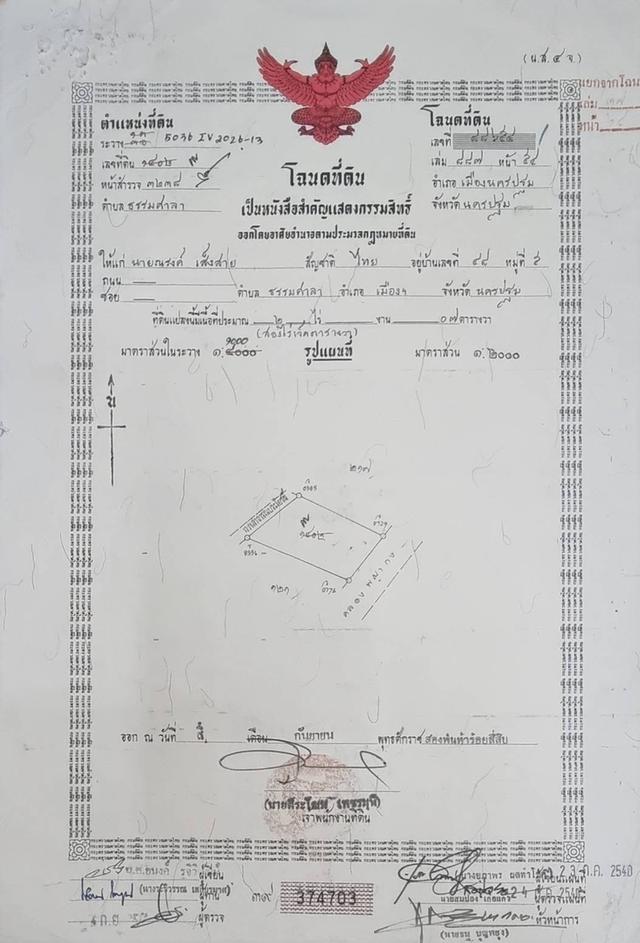 (น.ส.๔ จ.)
ตำแหน่งที่ดิน
ระวาง 5036 IV 2026-13
เลขที่ดิน ๑๔๐๒
หน้าสำรวจ ๓๒๓๘
ตำบล ธรรมศาลา
โฉนดที่ดิน
เลขที่
เล่ม ๘๘๗ หน้า ๕๔
อำเภอ เมืองนครปฐม
จังหวัด นครปฐม
โฉนดที่ดิน
เป็นหนังสือสำคัญแสดงกรรมสิทธิ์
ออกโดยอาศัยอำนาจตามประมวลกฎหมายที่ดิน
ให้แก่ นายณรงค์ เส็งสาย สัญชาติ ไทย อยู่บ้านเลขที่ ๔๘ หมู่ที่ ๕
ถนน
ซอย ตำบล ธรรมศาลา อำเภอ เมืองฯ จังหวัด นครปฐม
ที่ดินแปลงนี้มีเนื้อที่ประมาณ ๒ ไร่ งาน ๐๗ ตารางวา
(สองไร่เจ็ดตารางวา)
๑๐๐๐
มาตราส่วนในระวาง ๑:๔๐๐๐ รูปแผนที่ มาตราส่วน ๑:๒๐๐๐
น
๒๑๗
๑๔๐๒
๑๒๑
ออก ณ วันที่ เดือน กันยายน พุทธศักราช สองพันห้าร้อยสี่สิบ
เจ้าพนักงานที่ดิน
ผู้เขียน
ผู้ทาน
ผู้ตรวจ
374703
2 3 ก.ค. 2540
ผู้เขียนแผนที่
ผู้ตรวจแผนที่
หัวหน้าการ